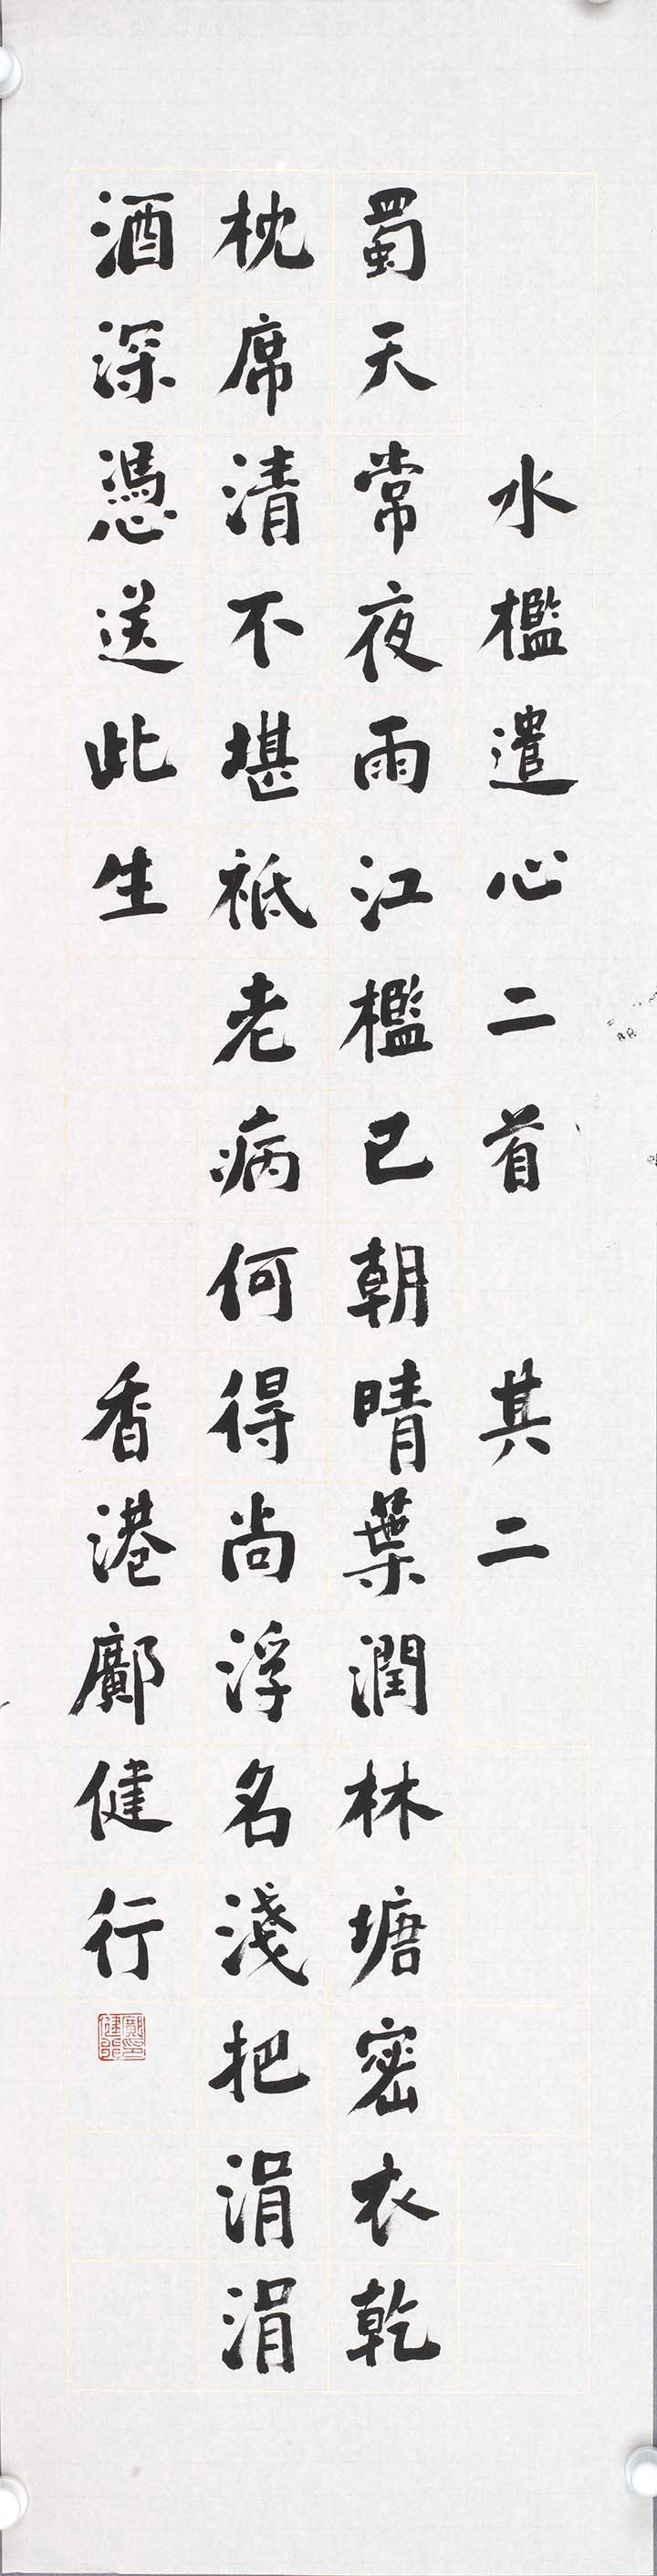 水檻遣心二首 其二
蜀天常夜雨江檻已朝晴葉潤林塘密衣乾
枕席清不堪祇老病何得尚浮名淺把涓涓
酒深憑送此生 香港鄺健行
鄺健行印